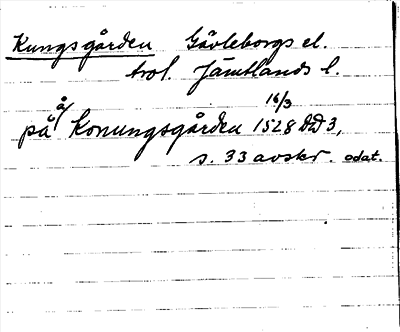 Kungsgården Gävleborgs el.
trol. Jämtlands l.
på å Konungsgården 16/3 1528 DD 3,
s. 33 avskr. odat.